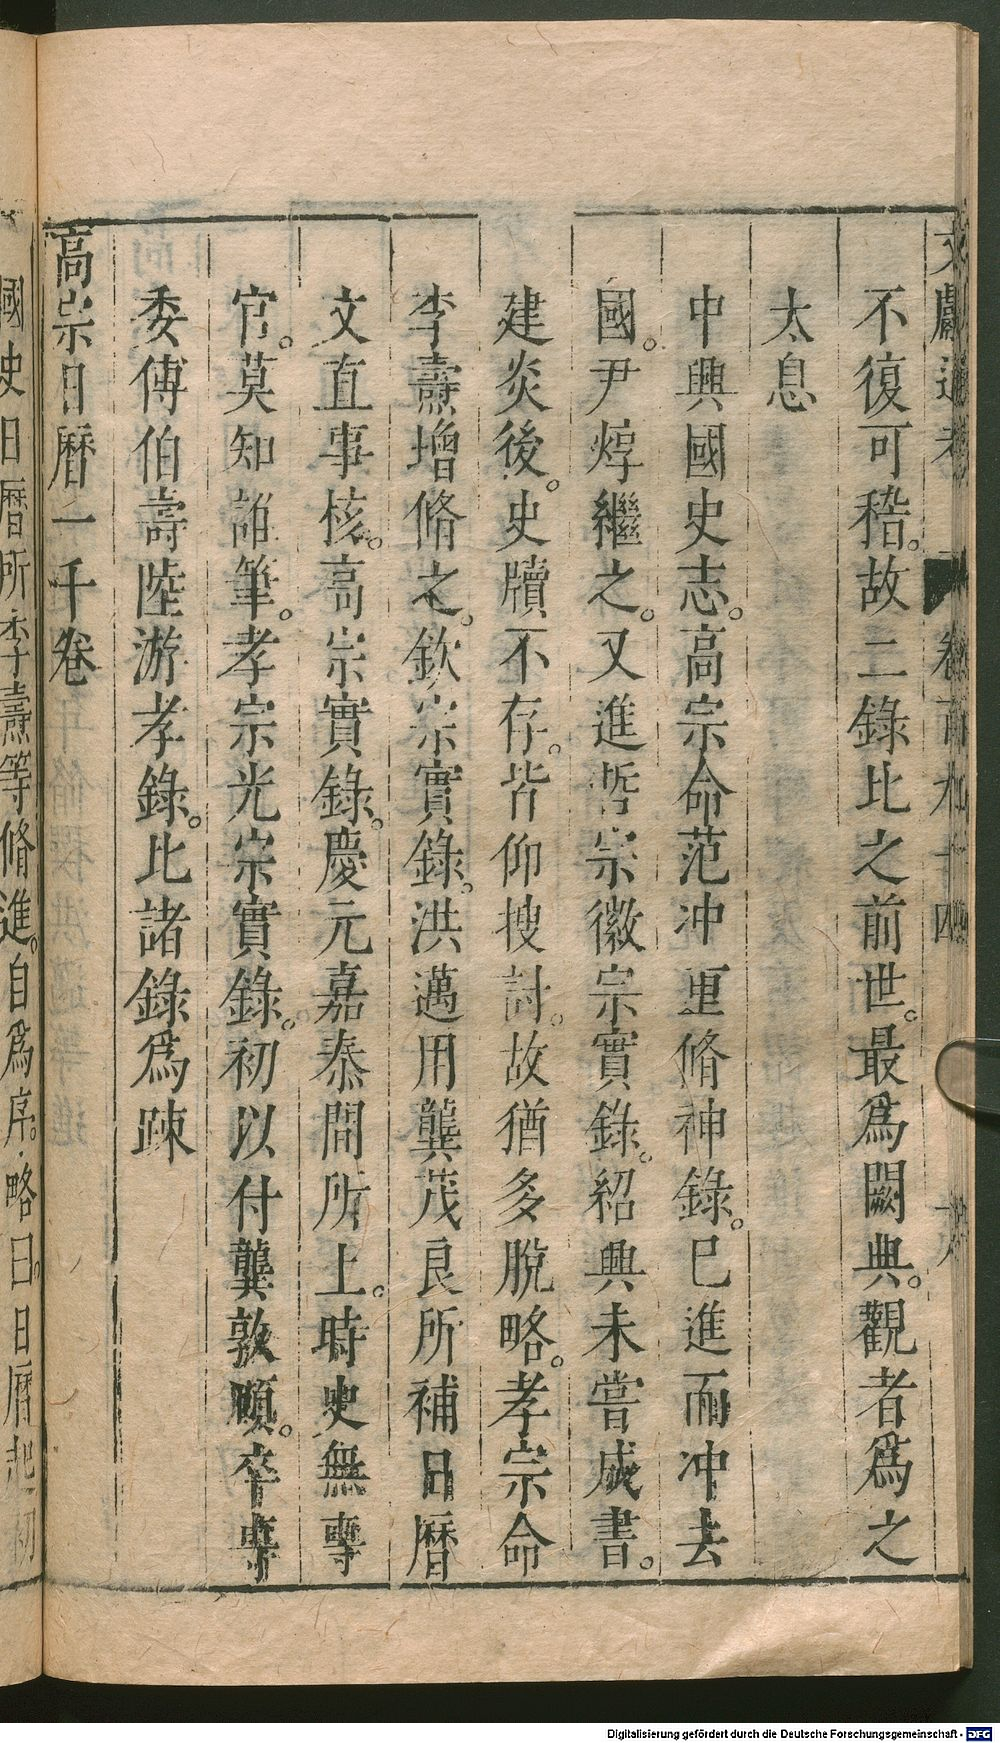 文獻通考 卷百九十四 十八
不復可稽。故二錄比之前世。最爲闕典。觀者爲之
太息
中興國史志。高宗命范冲重脩神錄。巳進而冲去
國。尹焞繼之。又進哲宗徽宗實錄。紹興未嘗成書。
建炎後。史牘不存。皆仰搜討。故猶多脫略。孝宗命
李燾增脩之。欽宗實錄。洪邁用龔茂良所補日曆
文直事核。高宗實錄。慶元嘉泰間所上。時史無專
官。莫知誰筆。孝宗光宗實錄。初以付龔敦頤。卒專
委傅伯壽陸游孝錄。比諸錄爲踈
高宗日曆一千卷
國史日曆所李燾等脩進。自爲序。略曰。日曆起初
Digitalisierung gefördert durch die Deutsche Forschungsgemeinschaft - DFG